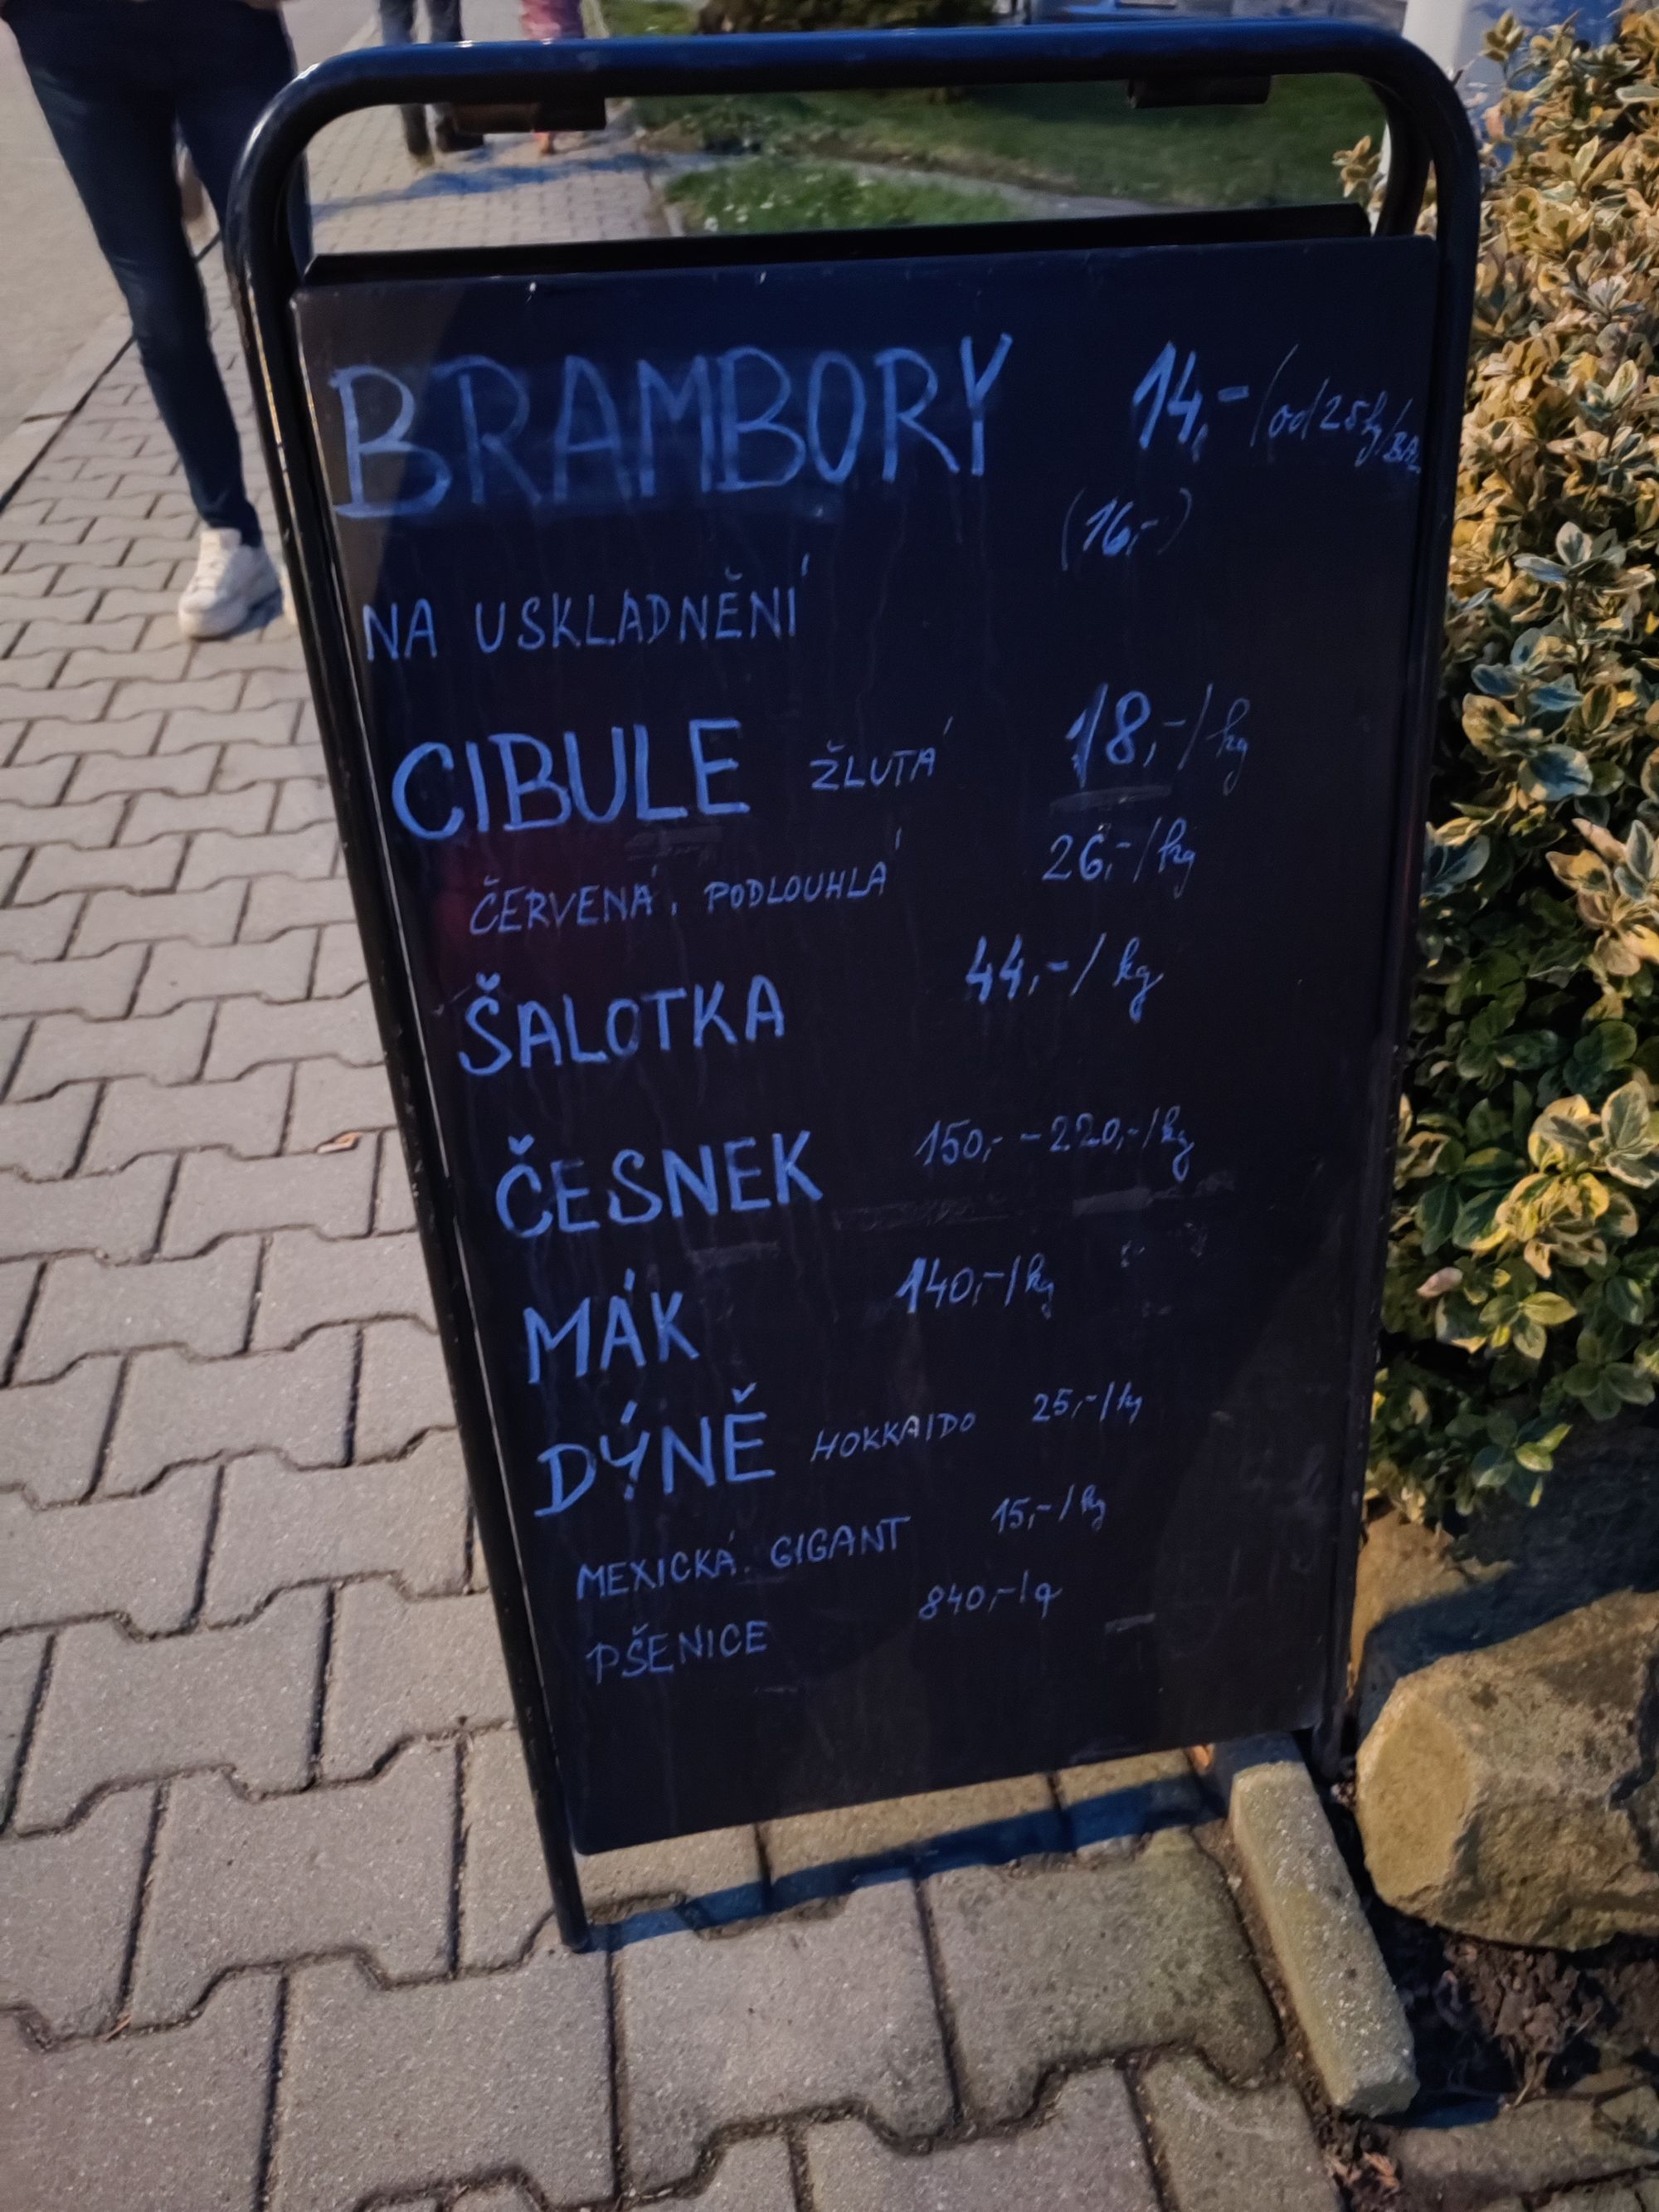 BRAMBORY 14,-/od 25kg/BAL
(16,-)
NA USKLADNĚNÍ
CIBULE ŽLUTÁ 18,-/kg
ČERVENÁ, PODLOUHLÁ 26,-/kg
ŠALOTKA 44,-/kg
ČESNEK 150,- - 220,-/kg
MÁK 140,-/kg
DÝNĚ HOKKAIDO 25,-/kg
MEXICKÁ, GIGANT 15,-/kg
PŠENICE 840,-/q